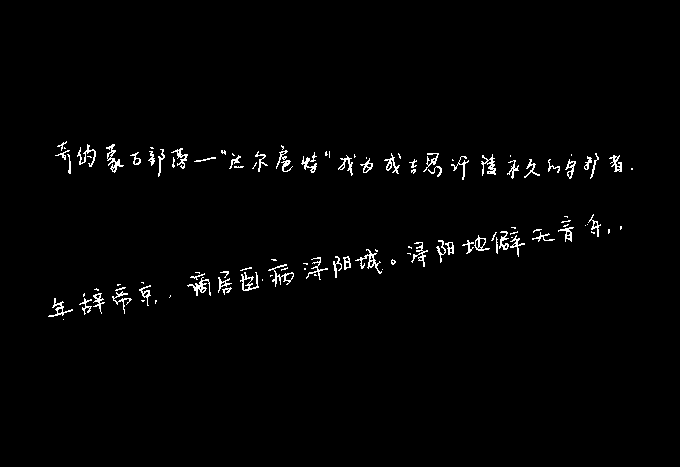 奇的蒙古部落一“达尔扈特”成为成吉思汗陵永久的守护者.
年辞帝京,,谪居卧病浔阳城。浔阳地僻无音乐,,